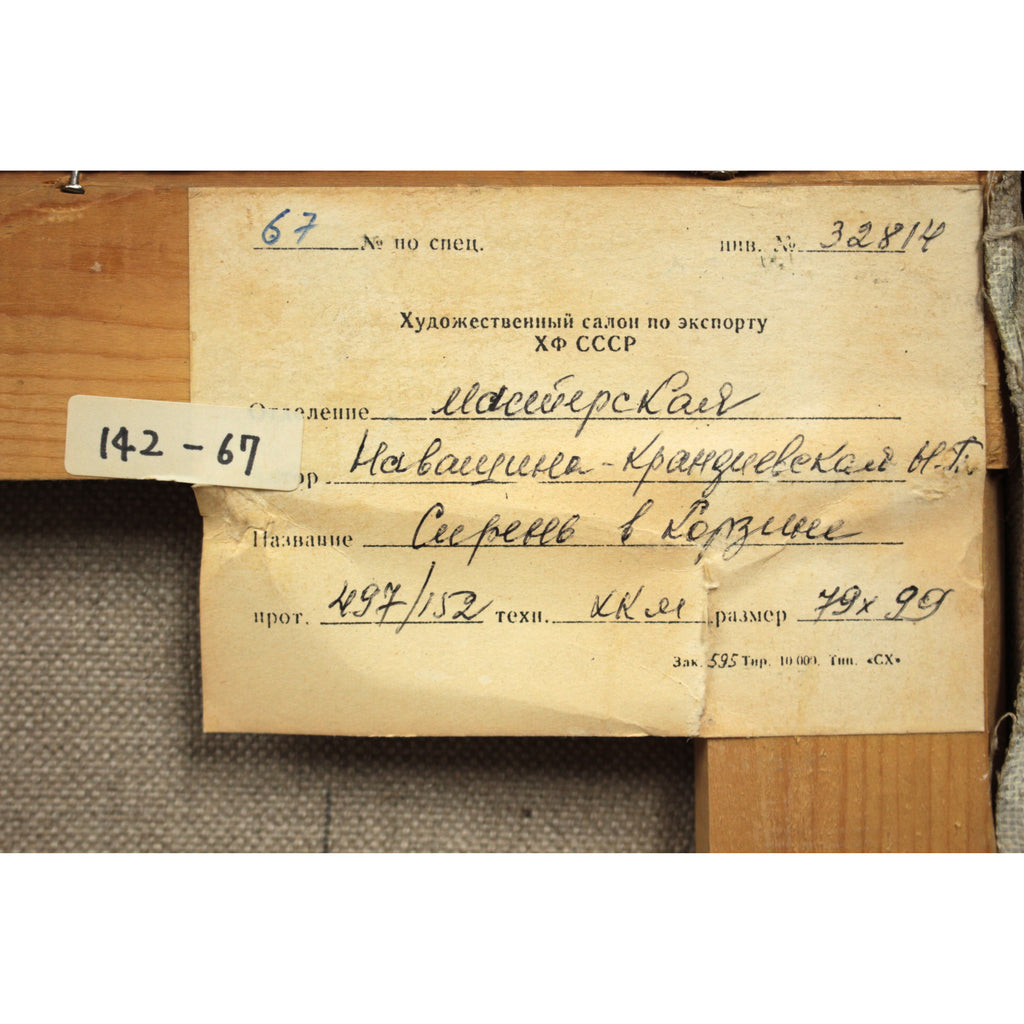 67 № по спец. инв. № 32814
Художественный салон по экспорту
ХФ СССР
Отделение мастерская
142-67
Навашина-Крандиевская Н.П.
Название Сирень в корзине
прот. 497/152 техн. ХКМ размер 79x99
Зак. 595 Тир. 10 000. Тип. «СХ»